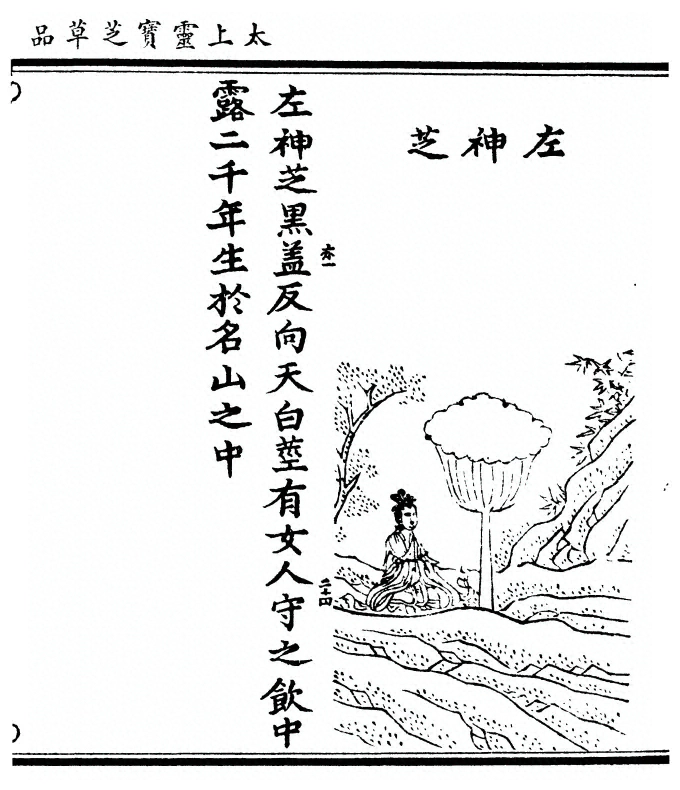 太上靈寶芝草品
左神芝
左神芝黑蓋反向天白莖有女人守之飲中
露二千年生於名山之中
二十四